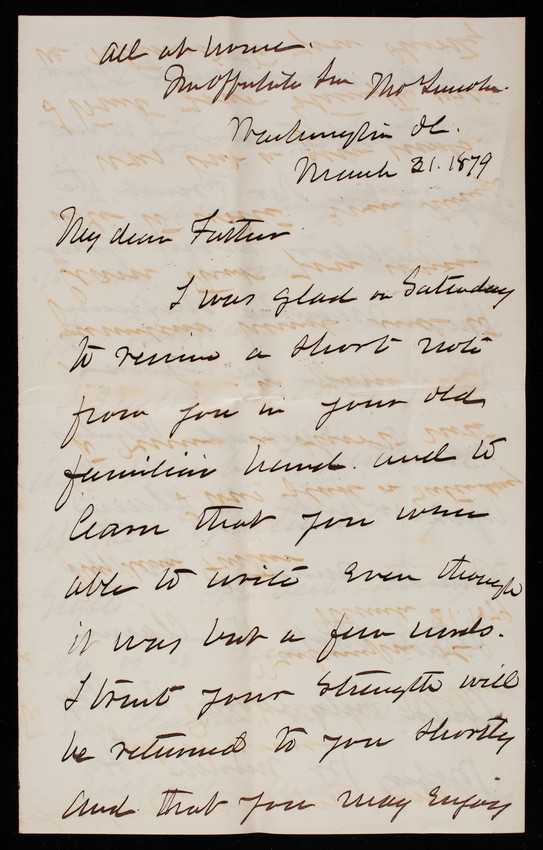 all at home.
Mr Lincoln.
Washington DC.
March 31. 1879
My dear Father
I was glad on Saturday
to receive a short note
from you in your old
familiar hand. and to
learn that you were
able to write even though
it was but a few words.
I trust your strength will
be returned to you shortly
and that you may enjoy